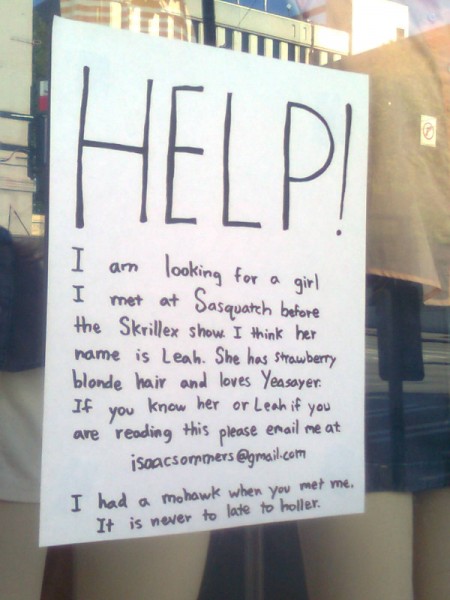 HELP!
I am looking for a girl
I met at Sasquatch before
the Skrillex show. I think her
name is Leah. She has strawberry
blonde hair and loves Yeasayer.
If you know her or Leah if you
are reading this please email me at
isaacsommers@gmail.com
I had a mohawk when you met me.
It is never to late to holler.